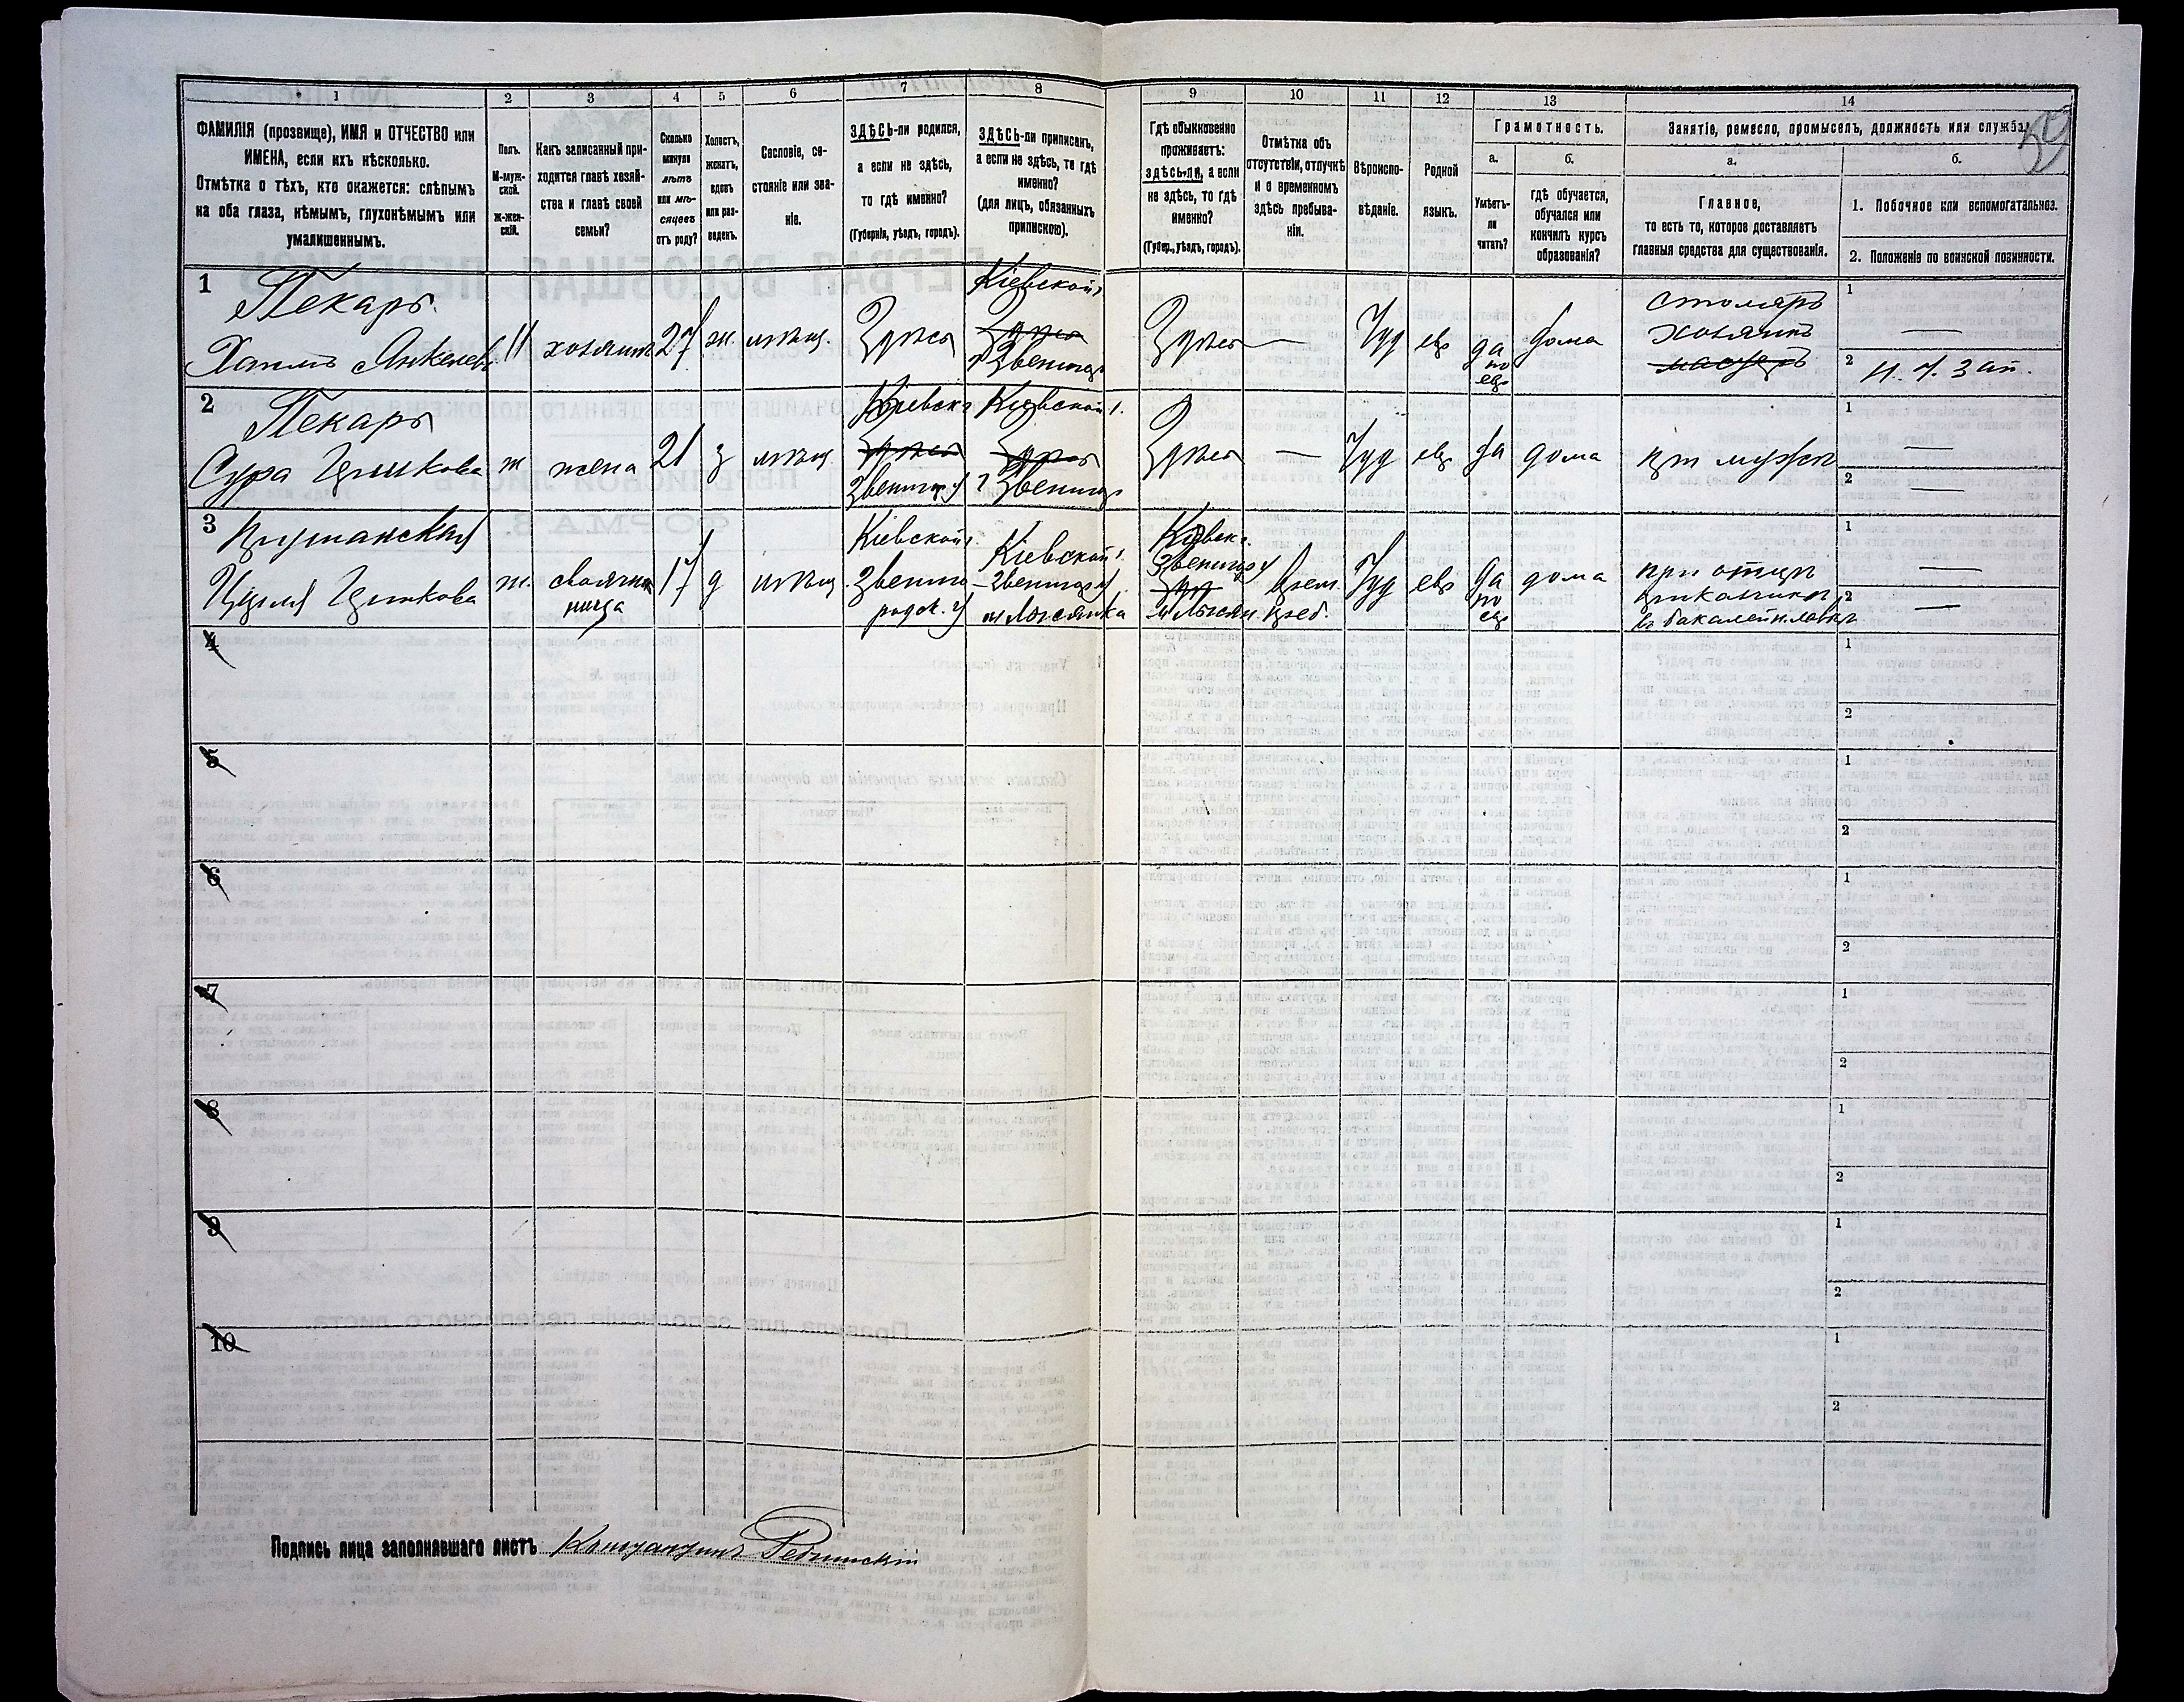 1 2 3 4 5 6 7 8 9 10 11 12 13 14
ФАМИЛІЯ (прозвище), ИМЯ и ОТЧЕСТВО или
ИМЕНА, если ихъ нѣсколько.
Отмѣтка о тѣхъ, кто окажется: слѣпымъ
на оба глаза, нѣмымъ, глухонѣмымъ или
умалишеннымъ.
Полъ.
М-муж-
ской.
ж-жен-
скій.
Какъ записанный при-
ходится главѣ хозяй-
ства и главѣ своей
семьи?
Сколько
минуло
лѣтъ
или мѣ-
сяцевъ
отъ роду?
Холостъ,
женатъ,
вдовъ
или раз-
веденъ.
Сословіе, со-
стояніе или зва-
ніе.
ЗДѢСЬ-ли родился,
а если не здѣсь,
то гдѣ именно?
(Губернія, уѣздъ, городъ).
ЗДѢСЬ-ли приписанъ,
а если не здѣсь, то гдѣ
именно?
(для лицъ, обязанныхъ
припискою).
Гдѣ обыкновенно
проживаетъ:
здѣсь-ли, а если
не здѣсь, то гдѣ
именно?
(Губер., уѣздъ, городъ).
Отмѣтка объ
отсутствіи, отлучкѣ
и о временномъ
здѣсь пребыва-
ніи.
Вѣроиспо-
вѣданіе.
Родной
языкъ.
Грамотность.
а.
Умѣетъ-
ли
читать?
б.
гдѣ обучается,
обучался или
кончилъ курсъ
образованія?
Занятіе, ремесло, промыселъ, должность или служба.
59
а.
Главное,
то есть то, которое доставляетъ
главныя средства для существованія.
б.
1. Побочное или вспомогательное.
2. Положеніе по воинской повинности.
1
Пекаръ
Хаимъ Анкелевъ
хозяинъ
27
ж.
мѣщ.
Здѣсь
Кіевской г.
Здѣсь
Звениг
Здѣсь
—
Іуд
евр
да
по
евр
дома
столяръ
хозяинъ
1
—
2
2
Пекаръ
Сура Ицькова
ж
жена
21
з
мѣщ.
Кіевск г
Здѣсь
Звениг у
Кіевской г.
Здѣсь
Звениг
Здѣсь
—
Іуд
евр
да
дома
при мужѣ
1
—
2
—
3
Ицькова
ж.
своячи
ница
17
д
мѣщ
Кіевской г.
Звениго
родск. у
Кіевской г.
Звениг у
м Лысянка
Кіевск г.
Звениг у
м Лысян.
врем
преб.
Іуд
евр
да
по
евр
дома
при отцѣ
въ бакалейн. лавкѣ
1
—
2
—
4
1
2
5
1
2
6
1
2
7
1
2
8
1
2
9
1
2
10
1
2
Подпись лица заполнявшаго листъ